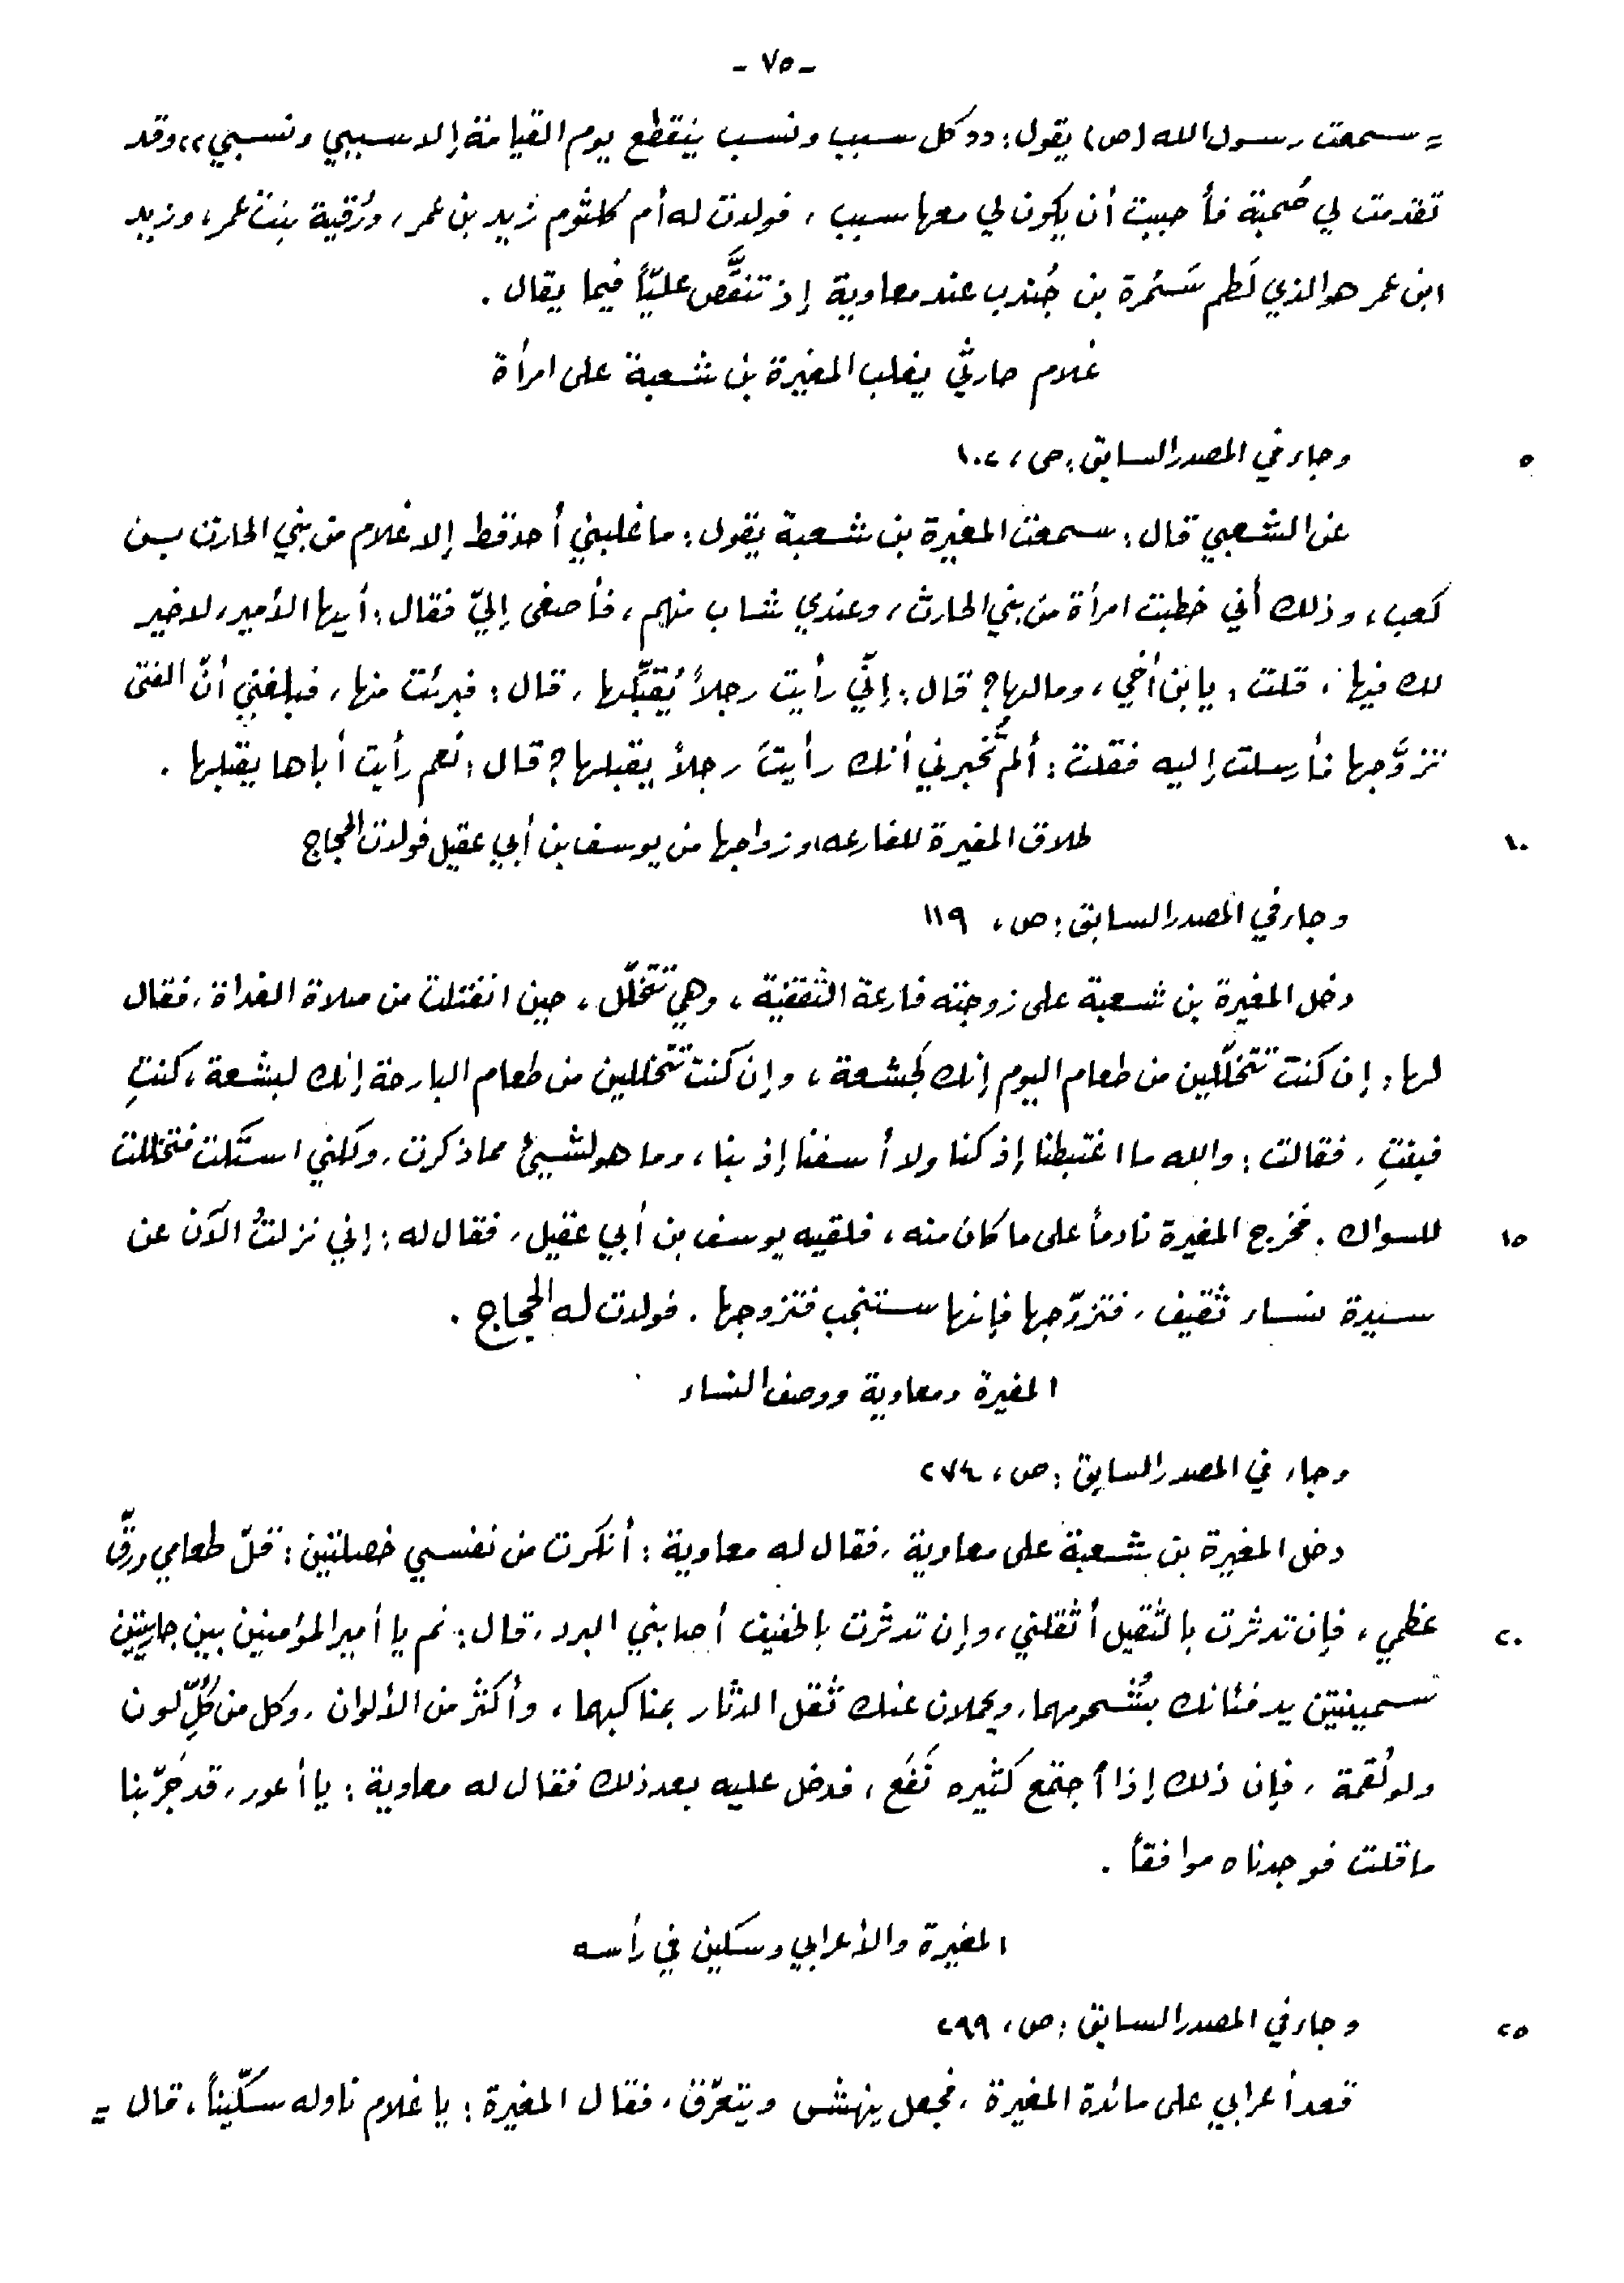 - ٧٥ -
= سمعت رسول الله (ص) يقول: «كل سبب ونسب ينقطع يوم القيامة إلا سببي ونسبي» وقد
تقدمت لي صُحبة فأحببت أن يكون لي معها سبب، فولدت له أم كلثوم زيد بن عمر، ورُقية بنت عمر، وزيد
ابن عمر هو الذي لَطم سَمُرة بن جُندب عند معاوية إذ تنقَّص عليّاً فيما يقال.
غلام حارثي يغلب المغيرة بن شعبة على امرأة
٥ وجاء في المصدر السابق: ص، ١٠٢
عن الشعبي قال: سمعت المغيرة بن شعبة يقول: ما غلبني أحد قط إلا غلام من بني الحارث بن
كعب، وذلك أني خطبت امرأة من بني الحارث، وعندي شاب منهم، فأصغى إليّ فقال: أيها الأمير، لا خير
لك فيها، قلت: يا بن أخي، وما لها؟ قال: إنّي رأيت رجلاً يُقبِّلها، قال: فبرئت منها، فبلغني أنّ الفتى
تزوَّجها فأرسلت إليه فقلت: ألم تُخبرني أنك رأيتَ رجلاً يقبلها؟ قال: نعم رأيت أباها يقبلها.
١٠ طلاق المغيرة للفارعه، وزواجها من يوسف بن أبي عقيل فولدت الحجاج
وجاء في المصدر السابق: ص، ١١٩
دخل المغيرة بن شعبة على زوجته فارعة الثقفية، وهي تتخلّل، حين انفتلت من صلاة الغداة، فقال
لها: إن كنت تتخلّلين من طعام اليوم إنك لجشعة، وإن كنت تتخللين من طعام البارحة إنك لبشعة، كنتِ
فبنتِ، فقالت: والله ما اغتبطنا إذ كنا ولا أسفنا إذ بنا، وما هو لشيئ مما ذكرت، ولكني استكت فتخللت
١٥ للسواك. فخرج المغيرة نادماً على ما كان منه، فلقيه يوسف بن أبي عقيل، فقال له: إني نزلتُ الآن عن
سيدة نساء ثقيف، فتزوّجها فإنها ستنجب فتزوجها. فولدت له الحجاج.
المغيرة ومعاوية ووصف النساء
وجاء في المصدر السابق: ص، ٢٧٤
دخل المغيرة بن شعبة على معاوية، فقال له معاوية: أنكرت من نفسي خصلتين: قلّ طعامي ورقّ
٢٠ عظمي، فإن تدثرت بالثقيل أثقلني، وإن تدثرت بالخفيف أصابني البرد، قال: نم يا أمير المؤمنين بين جاريتين
سمينتين يدفئانك بشُحومهما، ويحملان عنك ثقل الدثار بمناكبهما، وأكثر من الألوان، وكل من كُلِّ لون
ولو لُقمة، فإن ذلك إذا أجتمع كثيره نَفَع، فدخل عليه بعد ذلك فقال له معاوية: يا أعور، قد جَرّبنا
ما قلت فوجدناه موافقاً.
المغيرة والأعرابي وسكين في رأسه
٢٥ وجاء في المصدر السابق: ص، ٢٩٩
قعد أعرابي على مائدة المغيرة، فجعل ينهش ويتعرّق، فقال المغيرة: يا غلام ناوله سكّيناً، قال =